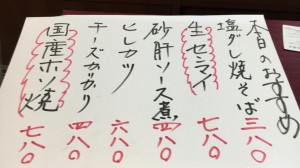 本日のおすすめ
塩ダレ焼そば 三八〇
生センマイ 七八〇
砂肝ソース煮 四八〇
ヒレカツ 六八〇
チーズカガリ 四八〇
国産ホソ焼 七八〇